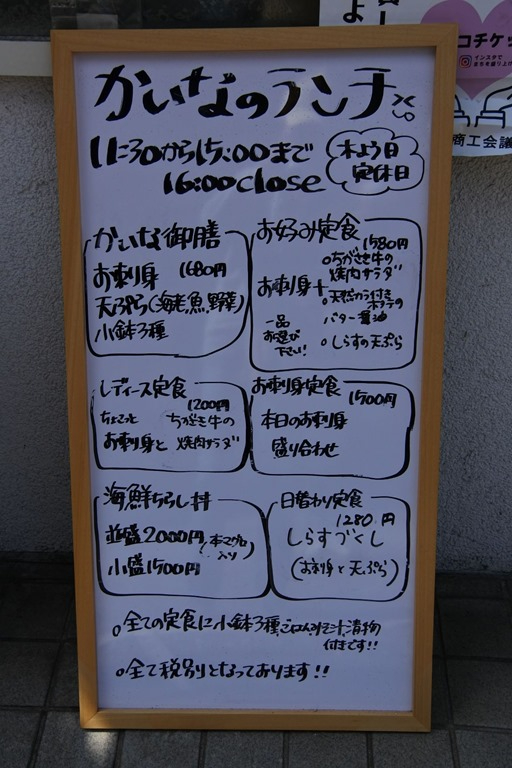 かいなのランチ
11:30から15:00まで
16:00close
木よう日
定休日
かいな御膳
1680円
お刺身
天ぷら(海老,魚,野菜)
小鉢3種
お好み定食
1580円
お刺身+
一品
お選び
下さい!
○ちがさき牛の
焼肉サラダ
○天然カラ付き
ホタテの
バター醤油
○しらすの天ぷら
レディース定食
1200円
ちょこっと
お刺身と
ちがさき牛の
焼肉サラダ
お刺身定食
1500円
本日のお刺身
盛り合わせ
海鮮ちらし丼
並盛2000円
(本マグロ
入り)
小盛1500円
日替わり定食
1280円
しらすづくし
(お刺身と天ぷら)
○全ての定食に小鉢3種,ごはん,みそ汁,漬物
付きです!!
○全て税別となっております!!
コチケッ
インスタで
まちを盛り上げ
商工会議